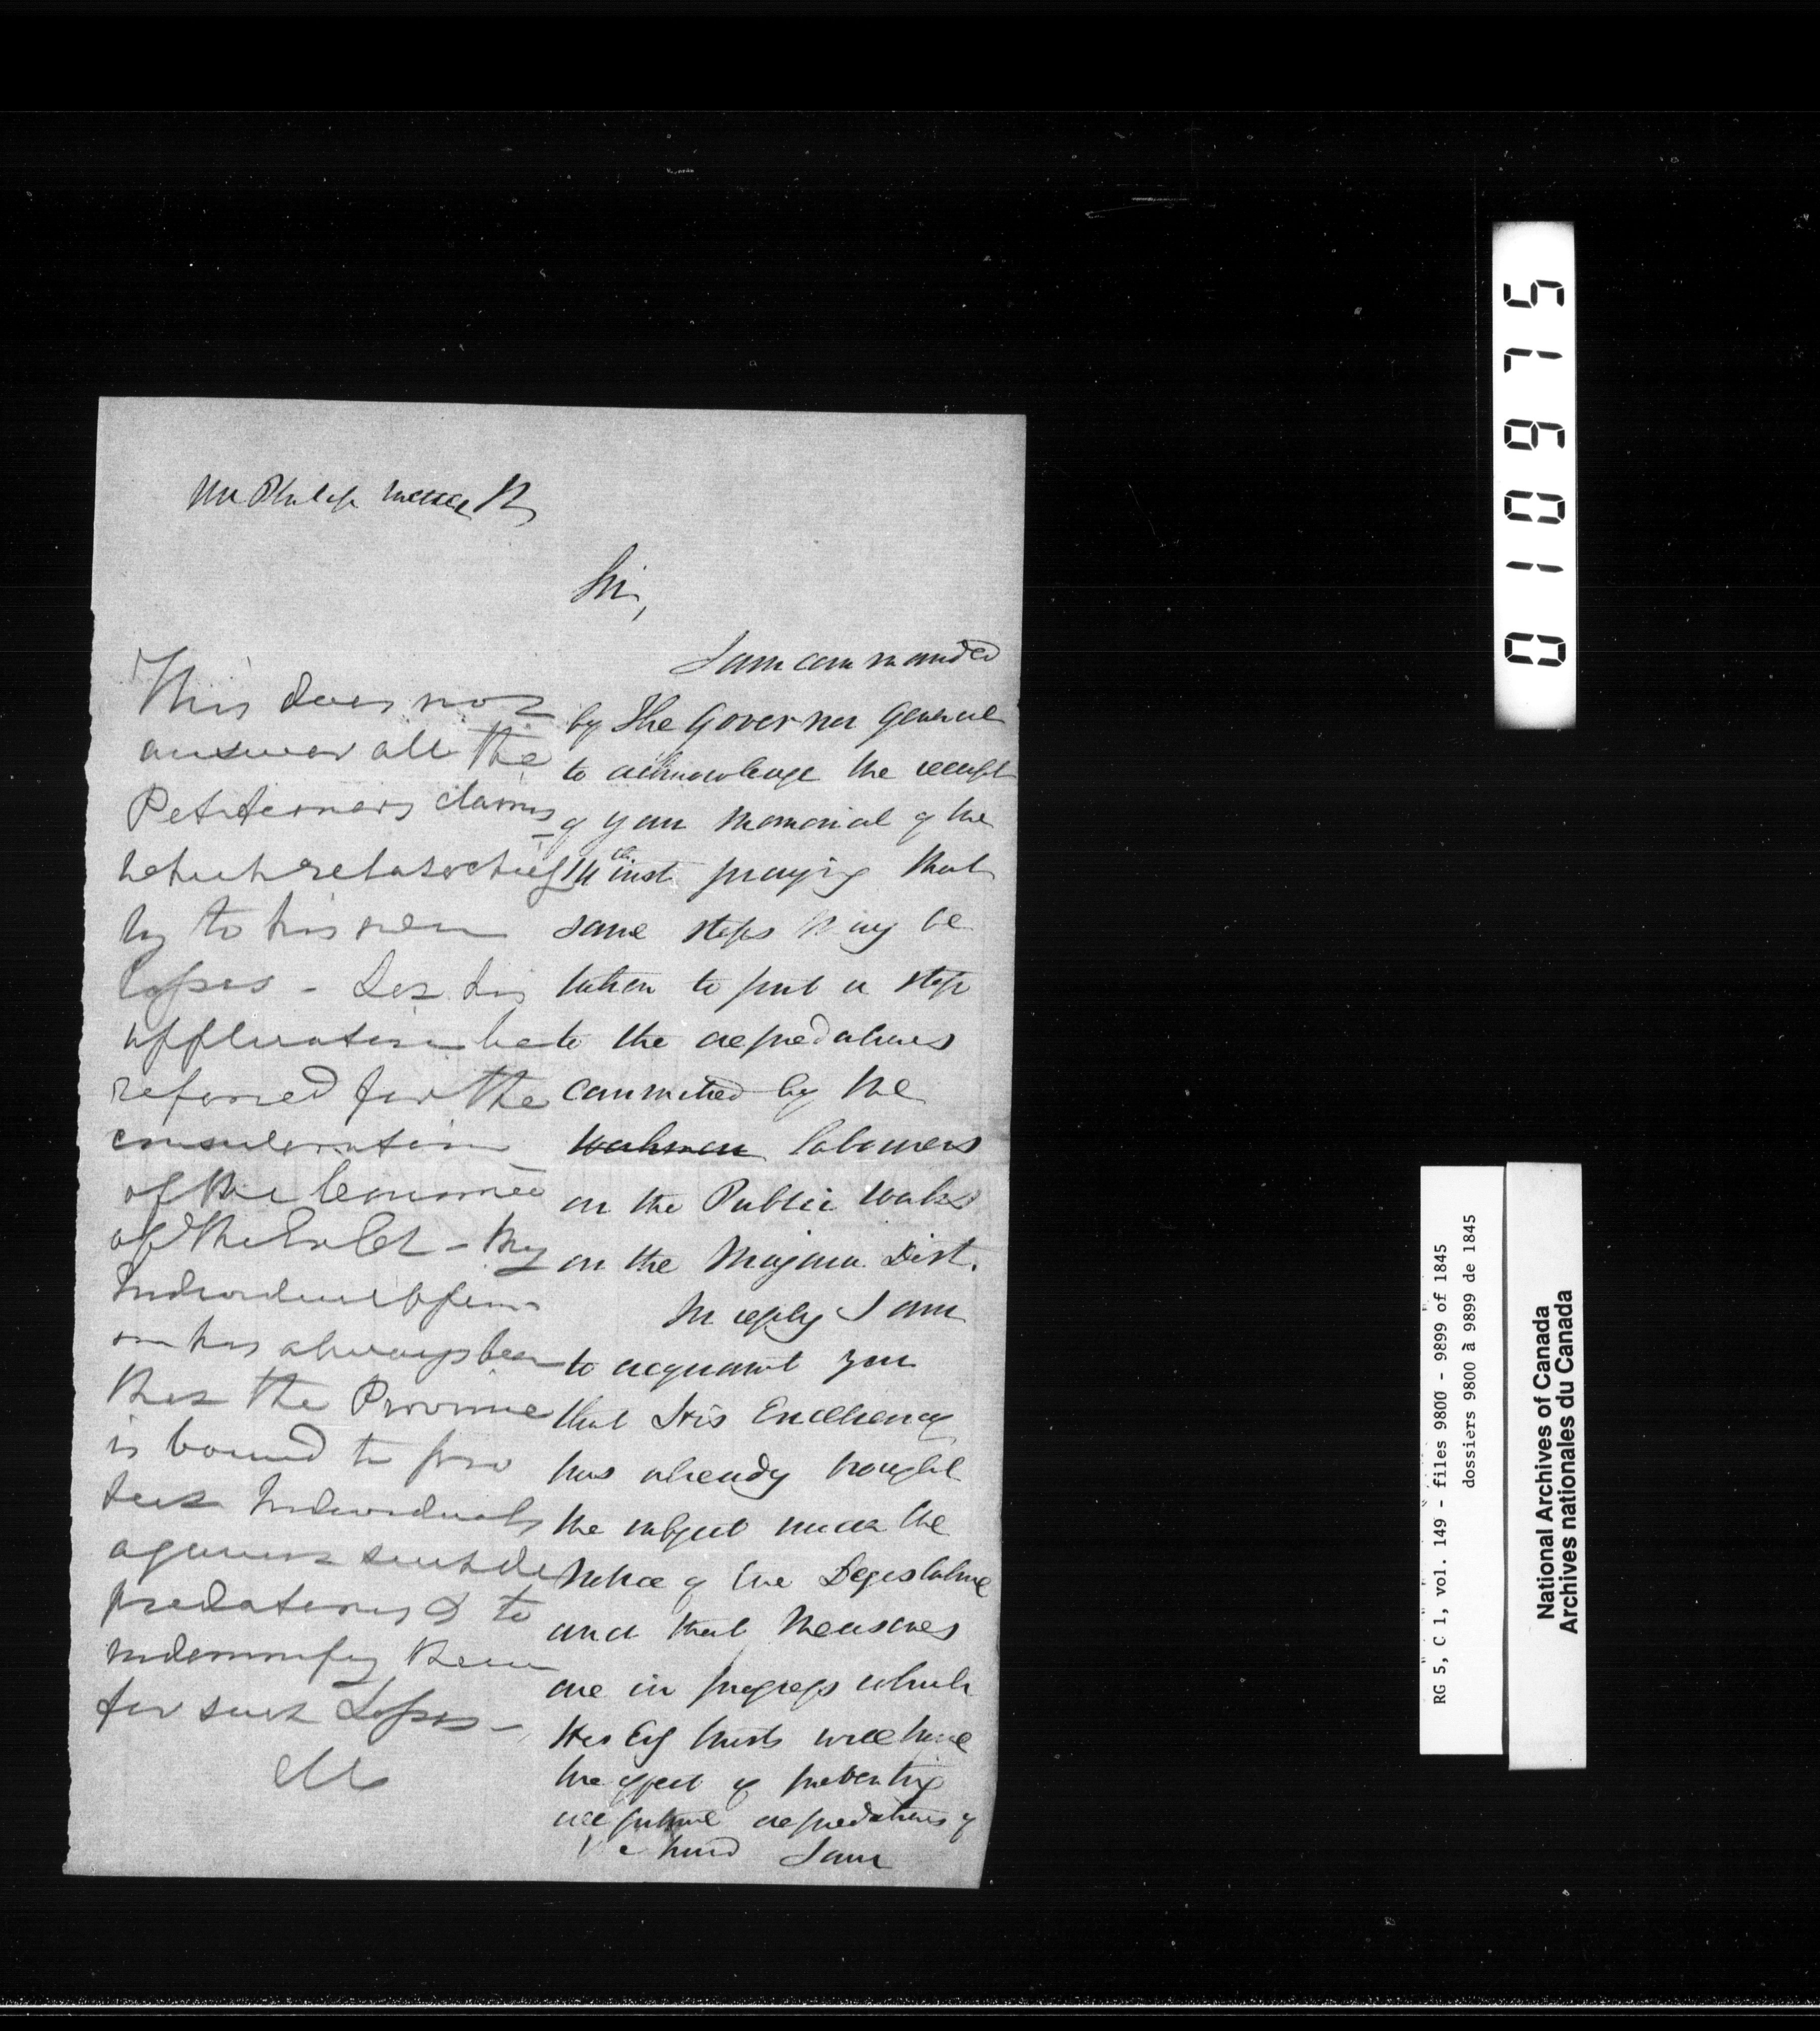 Mr Philip
Sir,
I am commanded
by The Governor General
to acknowledge the receipt
of your Memorial of the
14th inst praying that
some steps may be
taken to put a stop
to the depredations
committed by the
Workmen labourers
on the Public Works
in the Niagara Dist.
In reply I am
to acquaint you
that His Excellency
has already brought
the subject under the
Notice of the Legislature
and that Measures
are in progress which
His Exy trusts will have
the effect of preventing
all future depredations of
kind I am
This does not
answer all the
Petitioners claims
which relates chief
ly to his own
losses - Let his
application be
referred for the
consideration
of the Committee
of the - My
Individual opini
on has always been
that the Province
is bound to pro
tect Individuals
against such de
predations & to
indemnify them
for such Losses -
M
010975
RG 5, C 1, vol. 149 - files 9800 - 9899 of 1845
dossiers 9800 à 9899 de 1845
National Archives of Canada
Archives nationales du Canada